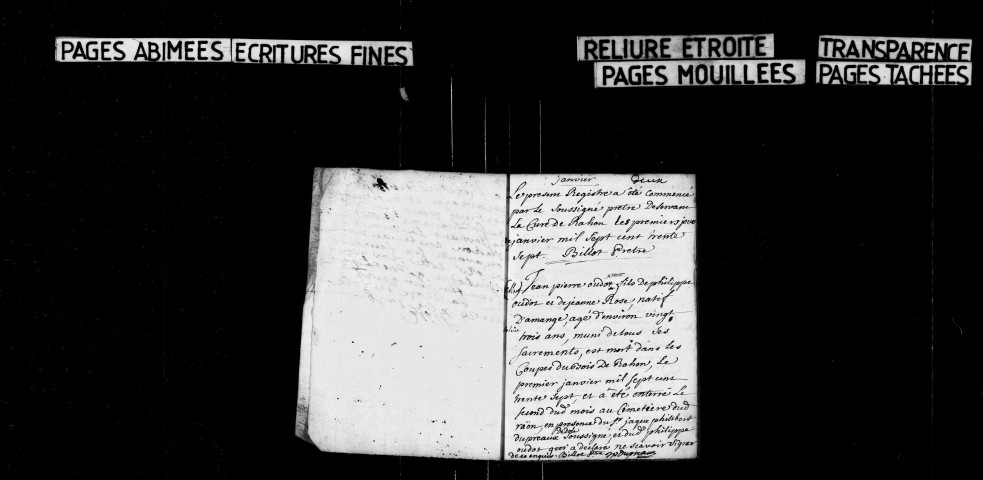 PAGES ABIMEES ECRITURES FINES
RELIURE ETROITE
PAGES MOUILLEES
TRANSPARENCE
PAGES TACHEES
janvier deux
Le present Registre a été commencé
par le soussigné prêtre Deservant
La Cure de Rahon les premiers jour
janvier mil sept cent trente
sept. Billot Pretre
Jean pierre oudot fils De philippe
oudot et de jeanne Rose, natif
D'amange, agé d'environ vingt
trois ans, muni de tous ses
sacrements, est mort dans les
Coupes du Bois De Rahon, Le
premier janvier mil sept cent
trente sept, et a été enterré Le
second dud mois au Cimetière dud
raon, en presence du Sr jaque philibert
dupreaux soussigné, et dud philippe
oudot qui a déclaré ne scavoir signer
de ce enquis. Billot Ptre